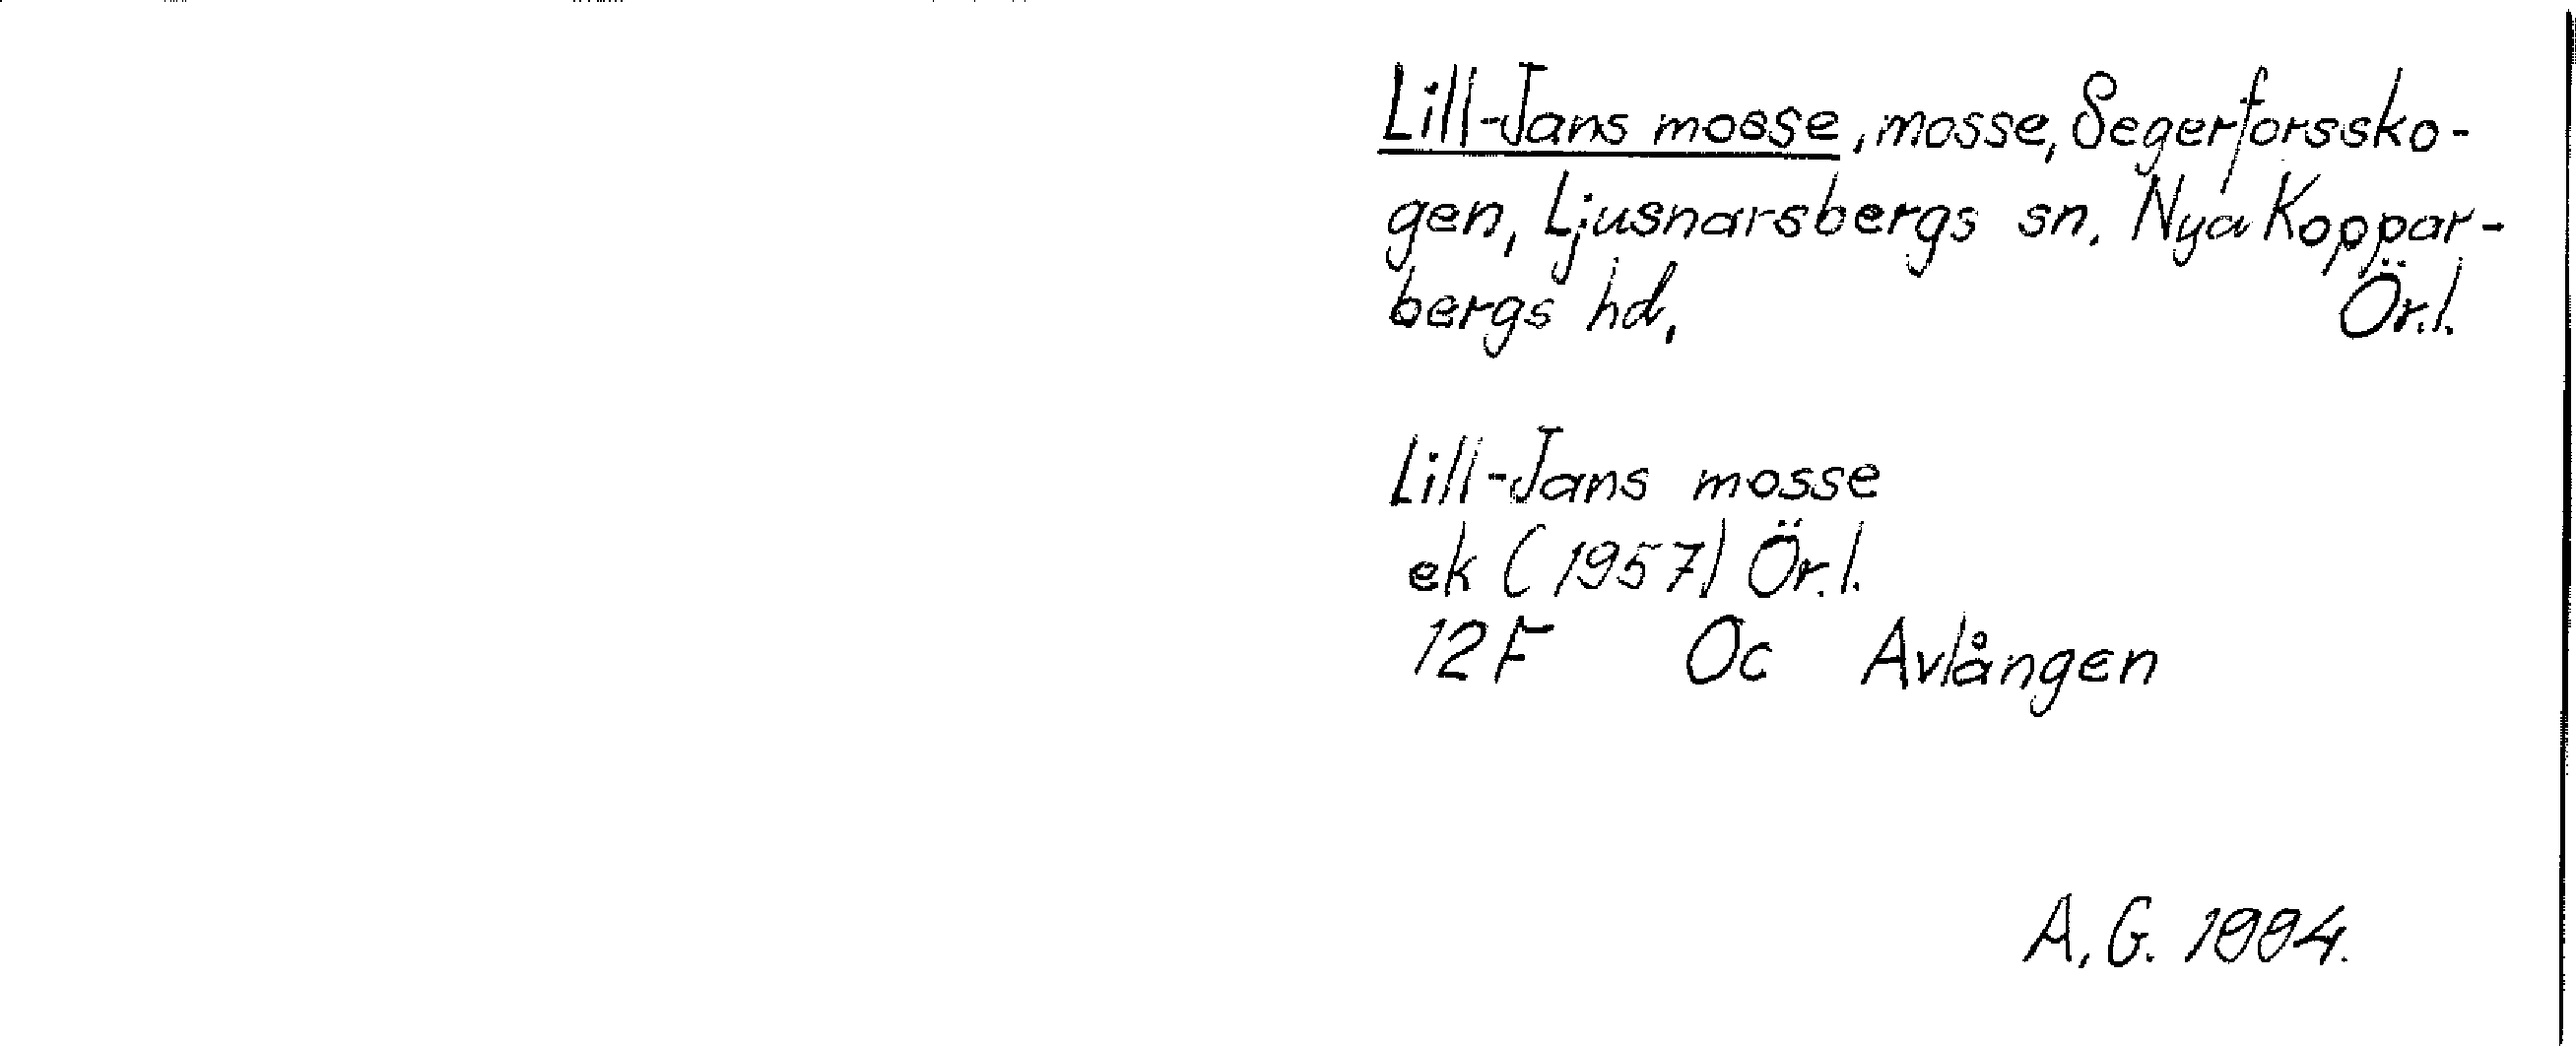 Lill-Jans mosse, mosse, Segerforssko-
gen, Ljusnarsbergs sn. Nya Koppar-
bergs hd, Ör.l.
Lill-Jans mosse
ek (1957) Ör.l.
12F Oc Avlången
A.G. 1994.